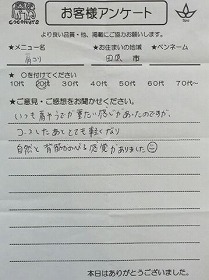 cocokuru
お客様アンケート
より良い品質・他、掲載にご協力お願いします。
★メニュー名 ★お住まいの地域 ★ペンネーム
肩コリ 市
★ ○を付けてください
10代 20代 30代 40代 50代 60代 70代～
★ご意見・ご感想をお聞かせください。
いつも肩やうでが重たい感じがあったのですが、
コースしたあととても軽くなり
自然と背筋ののびる感覚がありました
本日はありがとうございました。